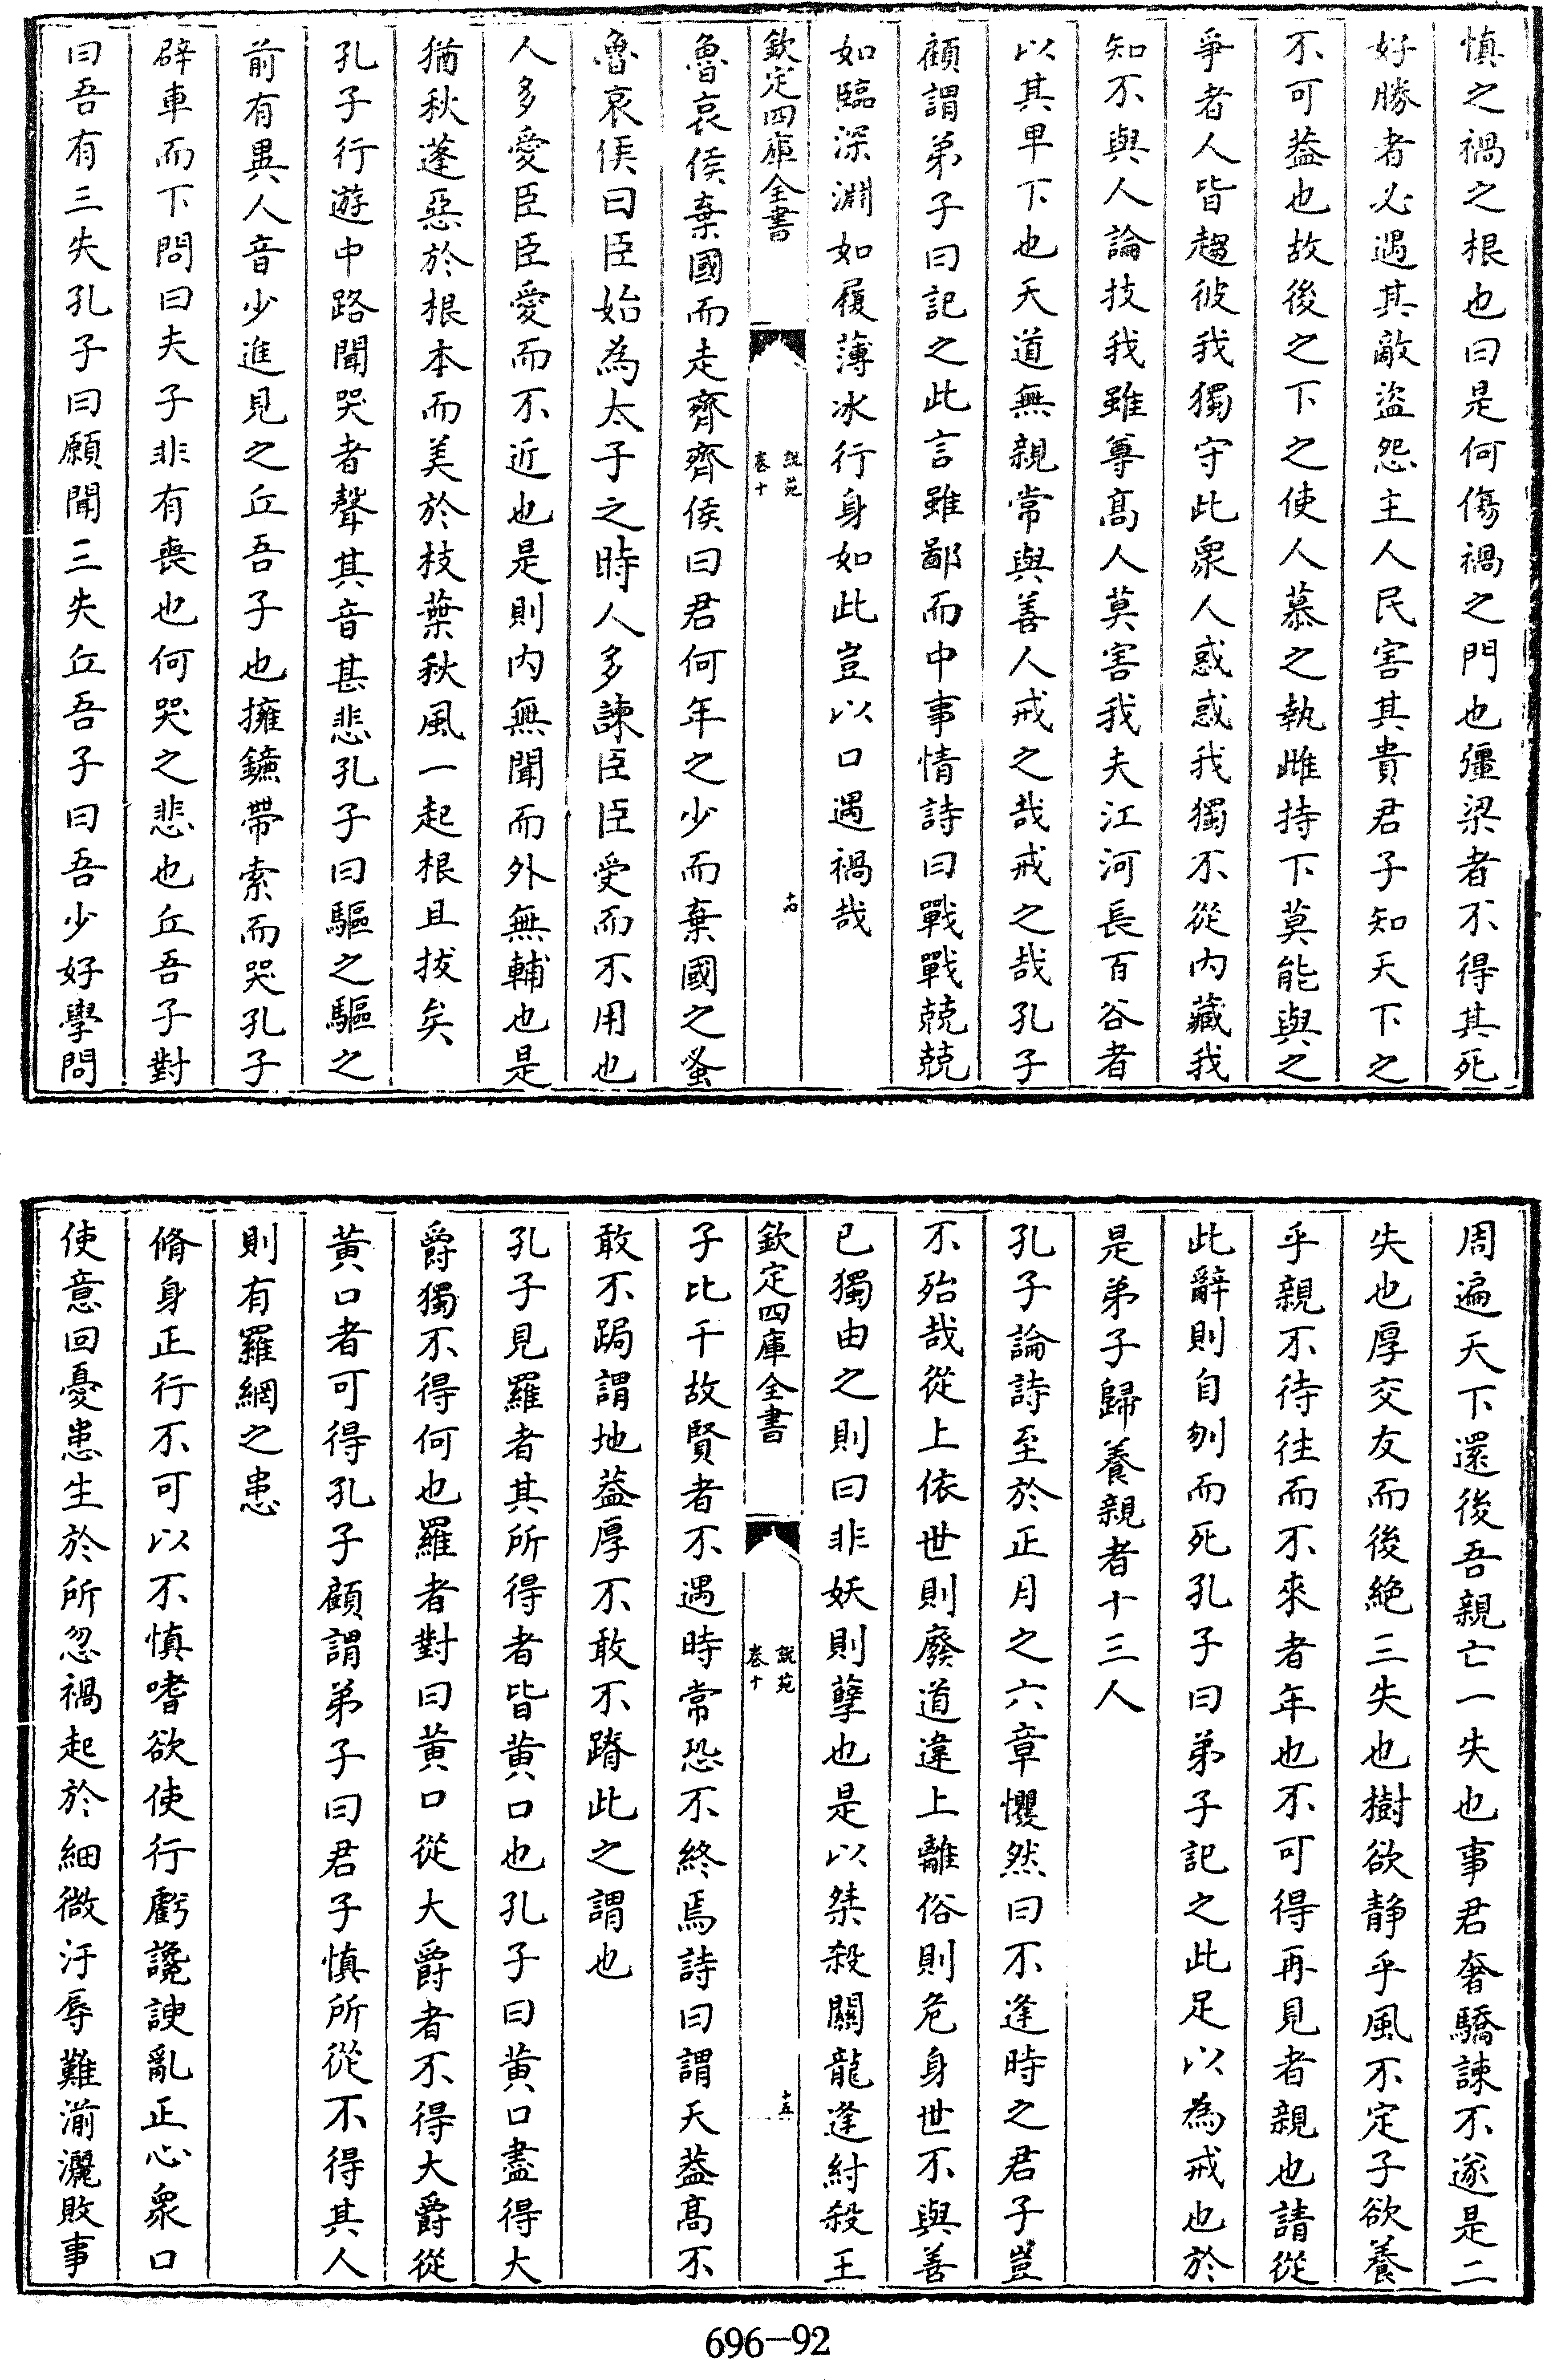 慎之禍之根也曰是何傷禍之門也彊梁者不得其死
好勝者必遇其敵盜怨主人民害其貴君子知天下之
不可葢也故後之下之使人慕之執雌持下莫能與之
爭者人皆趨彼我獨守此衆人惑惑我獨不從內藏我
知不與人論技我雖尊髙人莫害我夫江河長百谷者
以其卑下也天道無親常與善人戒之哉戒之哉孔子
顧謂弟子曰記之此言雖鄙而中事情詩曰戰戰兢兢
如臨深淵如履薄冰行身如此豈以口遇禍哉
欽定四庫全書
說苑
卷十
十四
魯哀侯棄國而走齊齊侯曰君何年之少而棄國之蚤
魯哀侯曰臣始為太子之時人多諫臣臣受而不用也
人多愛臣臣愛而不近也是則内無聞而外無輔也是
猶秋蓬惡於根本而美於枝葉秋風一起根且拔矣
孔子行遊中路聞哭者聲其音甚悲孔子曰驅之驅之
前有異人音少進見之丘吾子也擁鐮帶索而哭孔子
辟車而下問曰夫子非有喪也何哭之悲也丘吾子對
曰吾有三失孔子曰願聞三失丘吾子曰吾少好學問
周遍天下還後吾親亡一失也事君奢驕諫不遂是二
失也厚交友而後絶三失也樹欲静乎風不定子欲養
乎親不待往而不來者年也不可得再見者親也請從
此辭則自刎而死孔子曰弟子記之此足以為戒也於
是弟子歸養親者十三人
孔子論詩至於正月之六章戄然曰不逢時之君子豈
不殆哉從上依世則廢道違上離俗則危身世不與善
已獨由之則曰非妖則孽也是以桀殺關龍逢紂殺王
欽定四庫全書
說苑
卷十
十五
子比干故賢者不遇時常恐不終焉詩曰謂天葢髙不
敢不跼謂地葢厚不敢不蹐此之謂也
孔子見羅者其所得者皆黄口也孔子曰黄口盡得大
爵獨不得何也羅者對曰黄口從大爵者不得大爵從
黄口者可得孔子顧謂弟子曰君子慎所從不得其人
則有羅網之患
脩身正行不可以不慎嗜欲使行虧讒諛亂正心衆口
使意回憂患生於所忽禍起於細微汙辱難湔灑敗事
696-92